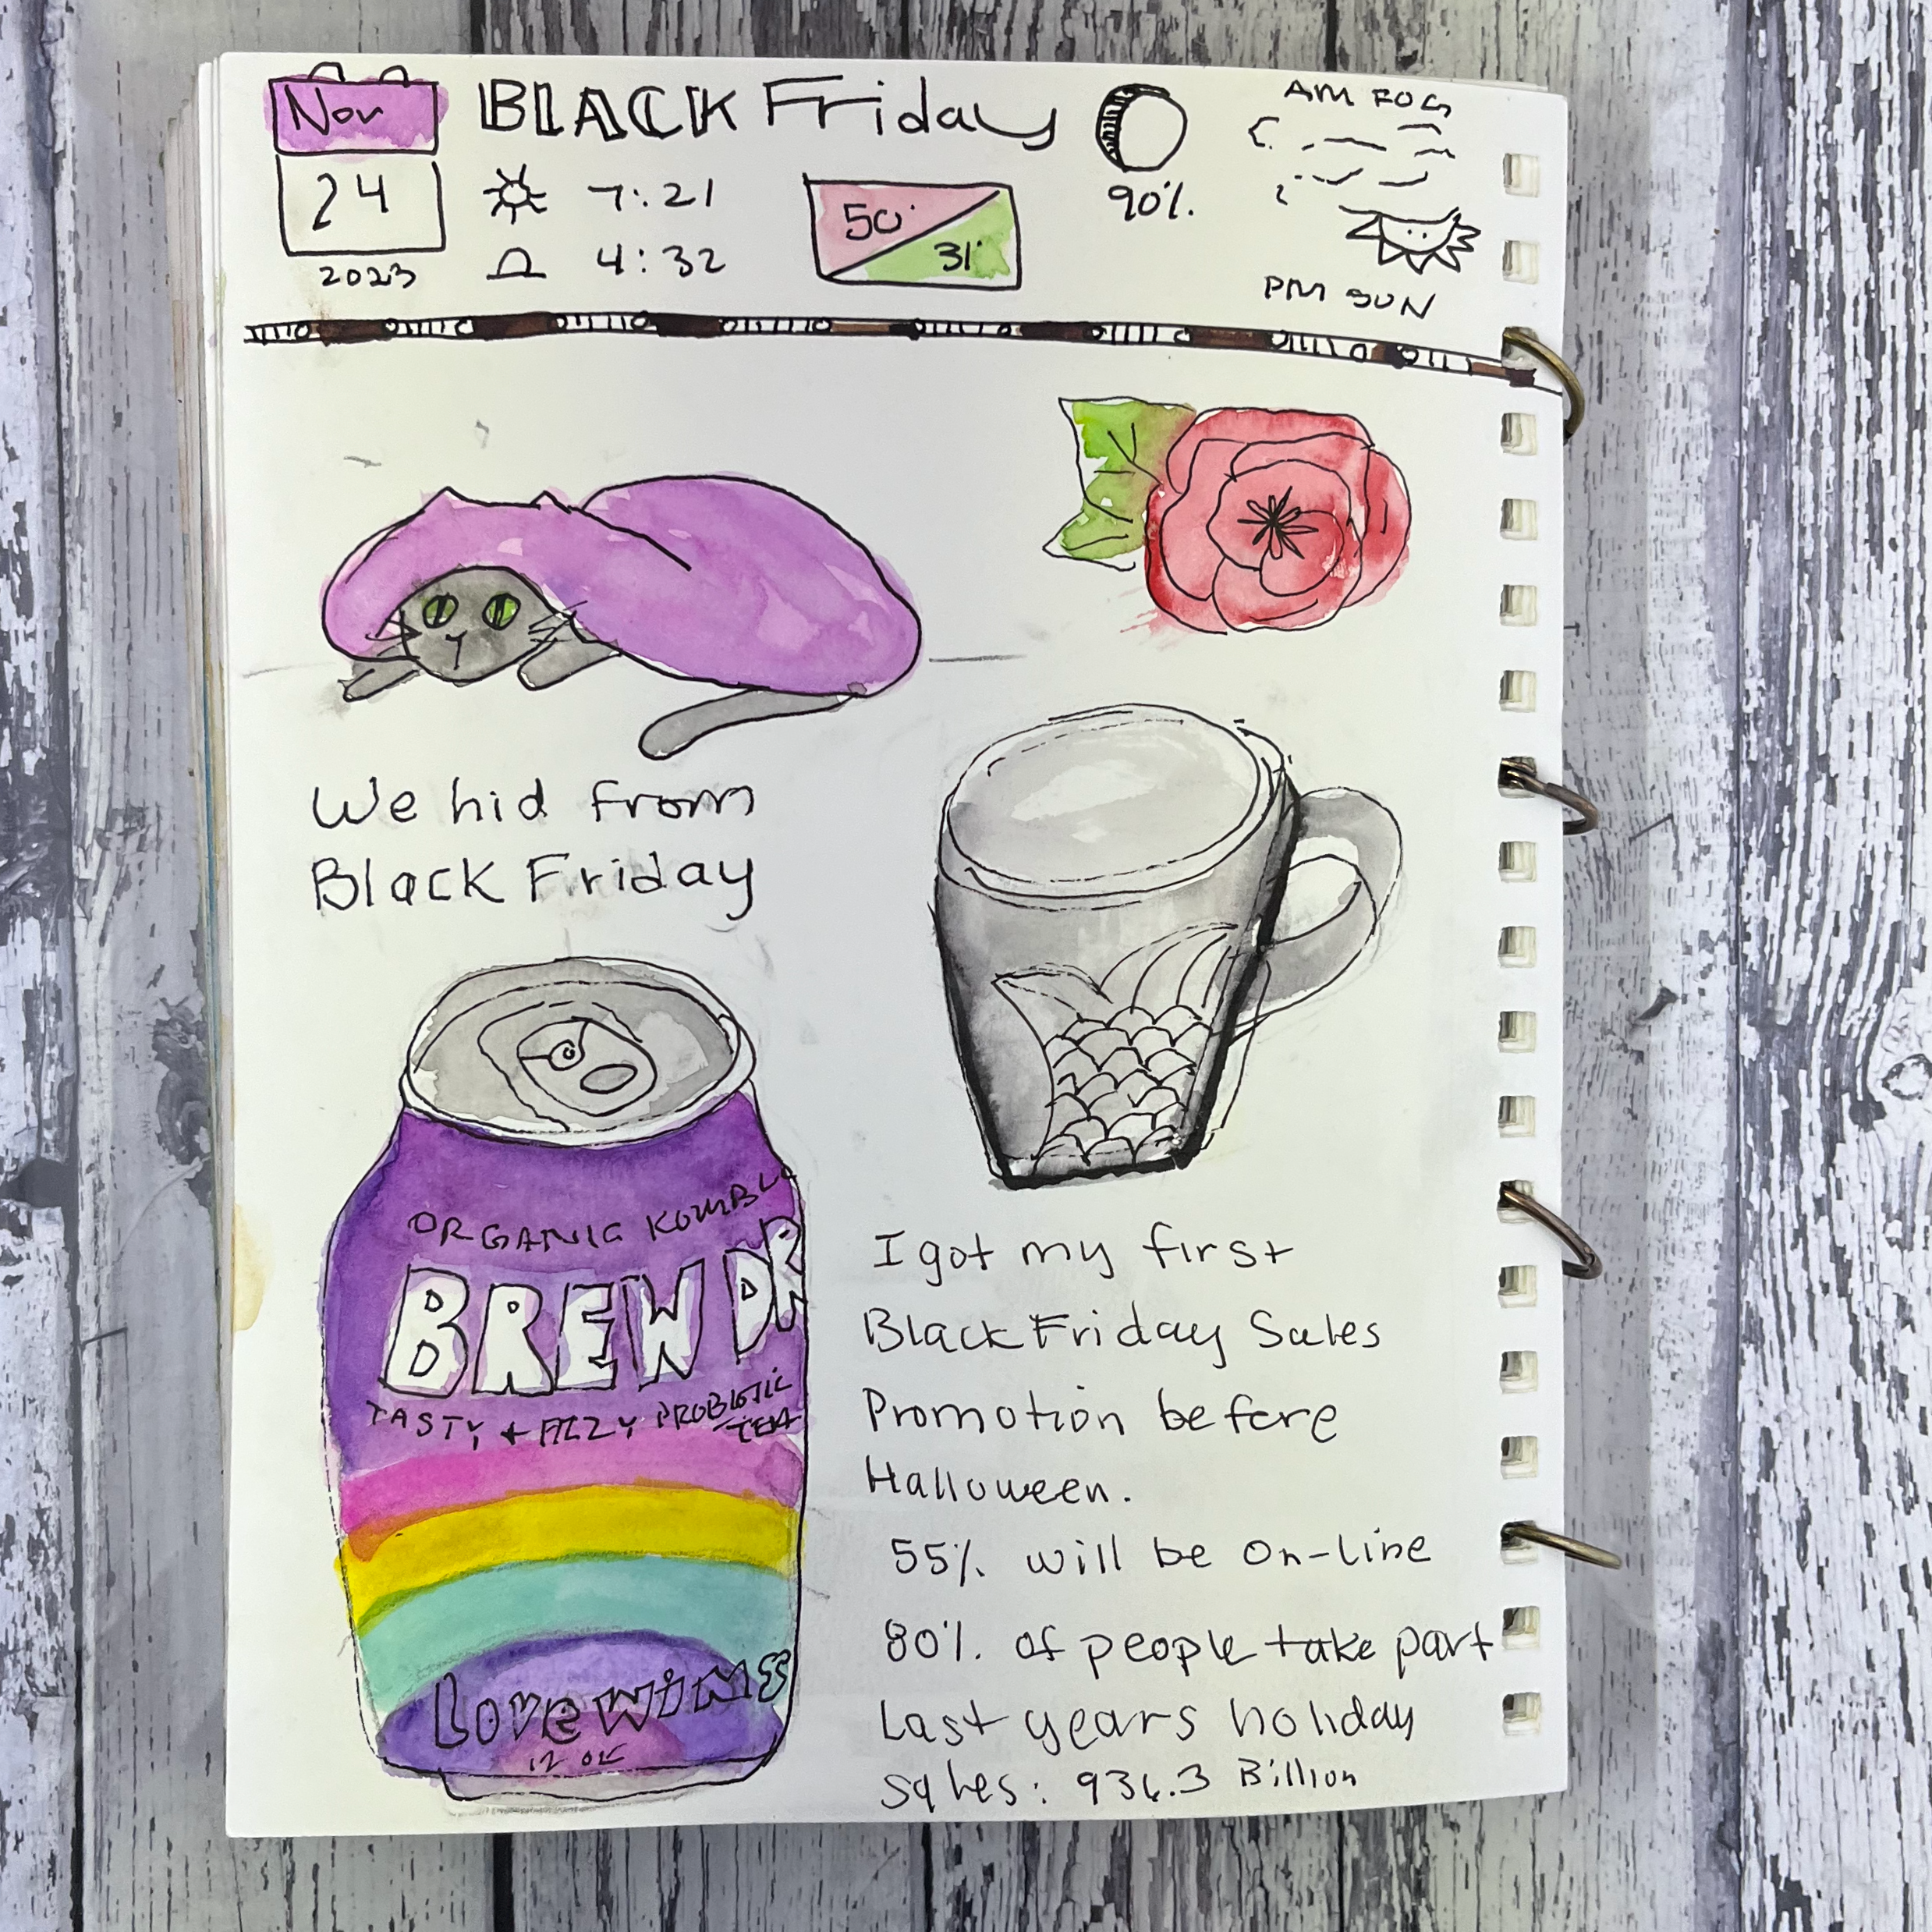 Nov
24
2023
BLACK Friday
7:21
4:32
50°
31°
90%
AM FOG
PM SUN
We hid from
Black Friday
ORGANIC KOMBUC
BREW DR
TASTY + FIZZY PROBIOTIC
TEA
Love wins
12 OZ
I got my first
Black Friday Sales
Promotion before
Halloween.
55% will be on-line
80% of people take part
Last years holiday
sales: 936.3 Billion